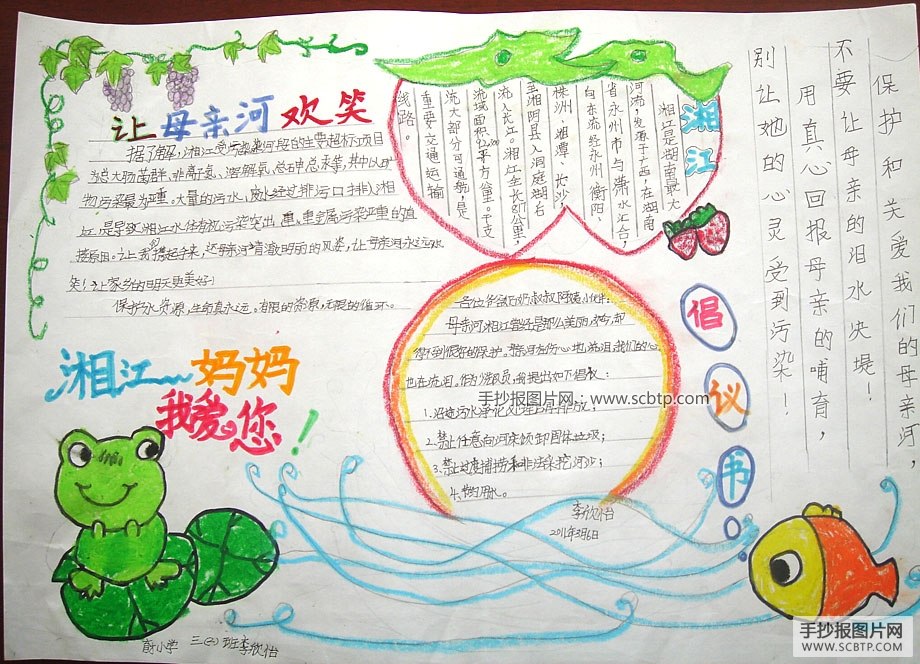 让母亲河欢笑
据了解，湘江受污染河段的主要超标项目
为总大肠菌群、非离氨、溶解氧、总砷总汞等，其中以
物污染最为重。大量的污水、废水经过排污口排入湘
江，是导致湘江水体有机污染突出
接原因。让我携起手来，还母亲河清澈明丽的风姿，让母亲河永远欢
笑！让家乡的明天更美好！
保护水资源，生命真永远。有限的资源，无限的循环。
湘江
湘江是湖南最大
河流，发源于广西，在湖南
省永州市与潇水汇合，
向东流经永州、衡阳、
株洲、湘潭、长沙，
至湘阴县入洞庭湖后
流入长江。湘江全长817公里，
流域面积92300平方公里。干支
流大部分可通航，是
重要交通运输
线路。
保护和关爱我们的母亲河，
不要让母亲的泪水决堤！
用真心回报母亲的哺育，
别让她的心灵受到污染！
倡议书
各位爷爷奶奶叔叔阿姨小伙伴：
母亲河湘江曾经是那么美丽，如今，却
得不到很好的保护。母亲河在伤心地流泪，我们的心
也在流泪。作为少先队员，我提出如下倡议：
2.禁止任意向河床倾卸固体垃圾；
3.禁止过度捕捞和非法采挖河沙；
4.节约用水。
李欣怡
2011年3月6日
手抄报图片网：www.scbtp.com
湘江~妈妈
我爱您！
小学 三(2)班李欣怡
手抄报图片网
WWW.SCBTP.COM